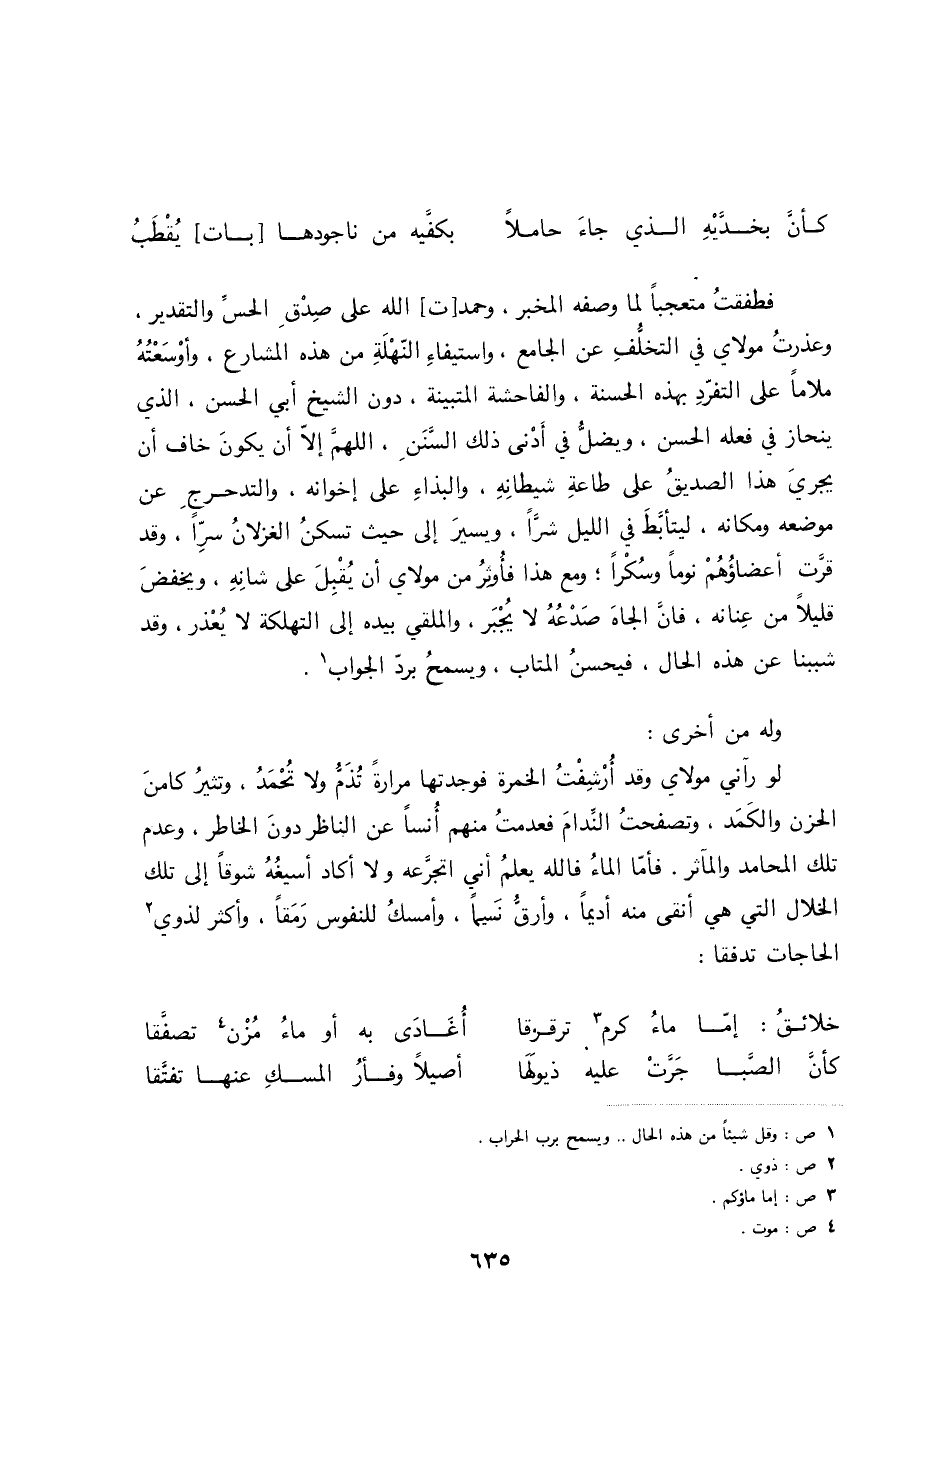 كأنَّ بخدَّيْهِ الذي جاءَ حاملاً بكفَّيه من ناجودها [بات] يُقْطَبُ
فطفقتُ متعجباً لما وصفه المخبر ، وحمد[ت] الله على صِدْقِ الحسِّ والتقدير ،
وعذرتُ مولاي في التخلُّفِ عن الجامع ، واستيفاءِ النّهْلَةِ من هذه المشارع ، وأوْسَعْتُهُ
ملاماً على التفرّدِ بهذه الحسنة ، والفاحشة المتبينة ، دون الشيخ أبي الحسن ، الذي
ينحاز في فعله الحسن ، ويضلُّ في أدْنى ذلك السَّنَنِ ، اللهمَّ إلاّ أن يكونَ خاف أن
يجريَ هذا الصديقُ على طاعةِ شيطانِهِ ، والبذاءِ على إخوانه ، والتدحرجِ عن
موضعه ومكانه ، ليتأبَّطَ في الليل شرًّا ، ويسيرَ إلى حيث تسكنُ الغزلانُ سرّاً ، وقد
قرَّت أعضاؤُهُمْ نوماً وسُكْراً ؛ ومع هذا فأُوثِرُ من مولاي أن يُقْبِلَ على شانِهِ ، ويخفضَ
قليلاً من عِنانه ، فانَّ الجاهَ صَدْعُهُ لا يُجْبَر ، والملقي بيده إلى التهلكة لا يُعْذر ، وقد
شببنا عن هذه الحال ، فيحسنُ المتاب ، ويسمحُ بردّ الجواب١ .
وله من أخرى :
لو رآني مولاي وقد أُرْشِفْتُ الخمرة فوجدتها مرارةً تُذَمُّ ولا تُحْمَدُ ، وتثيرُ كامنَ
الحزن والكَمَد ، وتصفحتُ النِّدامَ فعدمتُ منهم أُنساً عن الناظر دونَ الخاطر ، وعدم
تلك المحامد والمآثر . فأمّا الماءُ فالله يعلمُ أني اتجرَّعه ولا أكاد أسيغُهُ شوقاً إلى تلك
الخلال التي هي أنقى منه أديماً ، وأرقُّ نَسيما ، وأمسكُ للنفوس رَمَقاً ، وأكثر لذوي٢
الحاجات تدفقا :
خلائقُ : إمّا ماءُ كرم٣ ترقرقا أُغَادَى به أو ماءُ مُزْن٤ تصفَّقا
كأنَّ الصَّبا جَرَّتْ عليه ذيولَها أصيلاً وفأرُ المسكِ عنها تفتَّقا
١ ص : وقل شيئاً من هذه الحال .. ويسمح برب الحراب .
٢ ص : ذوي .
٣ ص : إما ماؤكم .
٤ ص : موت .
٦٣٥